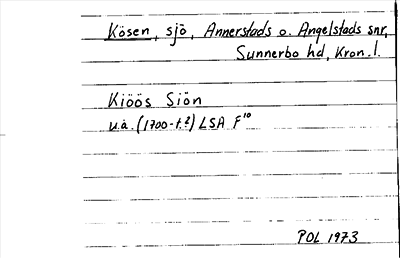 Kösen, sjö, Annerstads o. Angelstads snr,
Sunnerbo hd, Kron. l.
Kiöös Siön
u.å. (1700-t.?) LSA F¹⁰
POL 1973